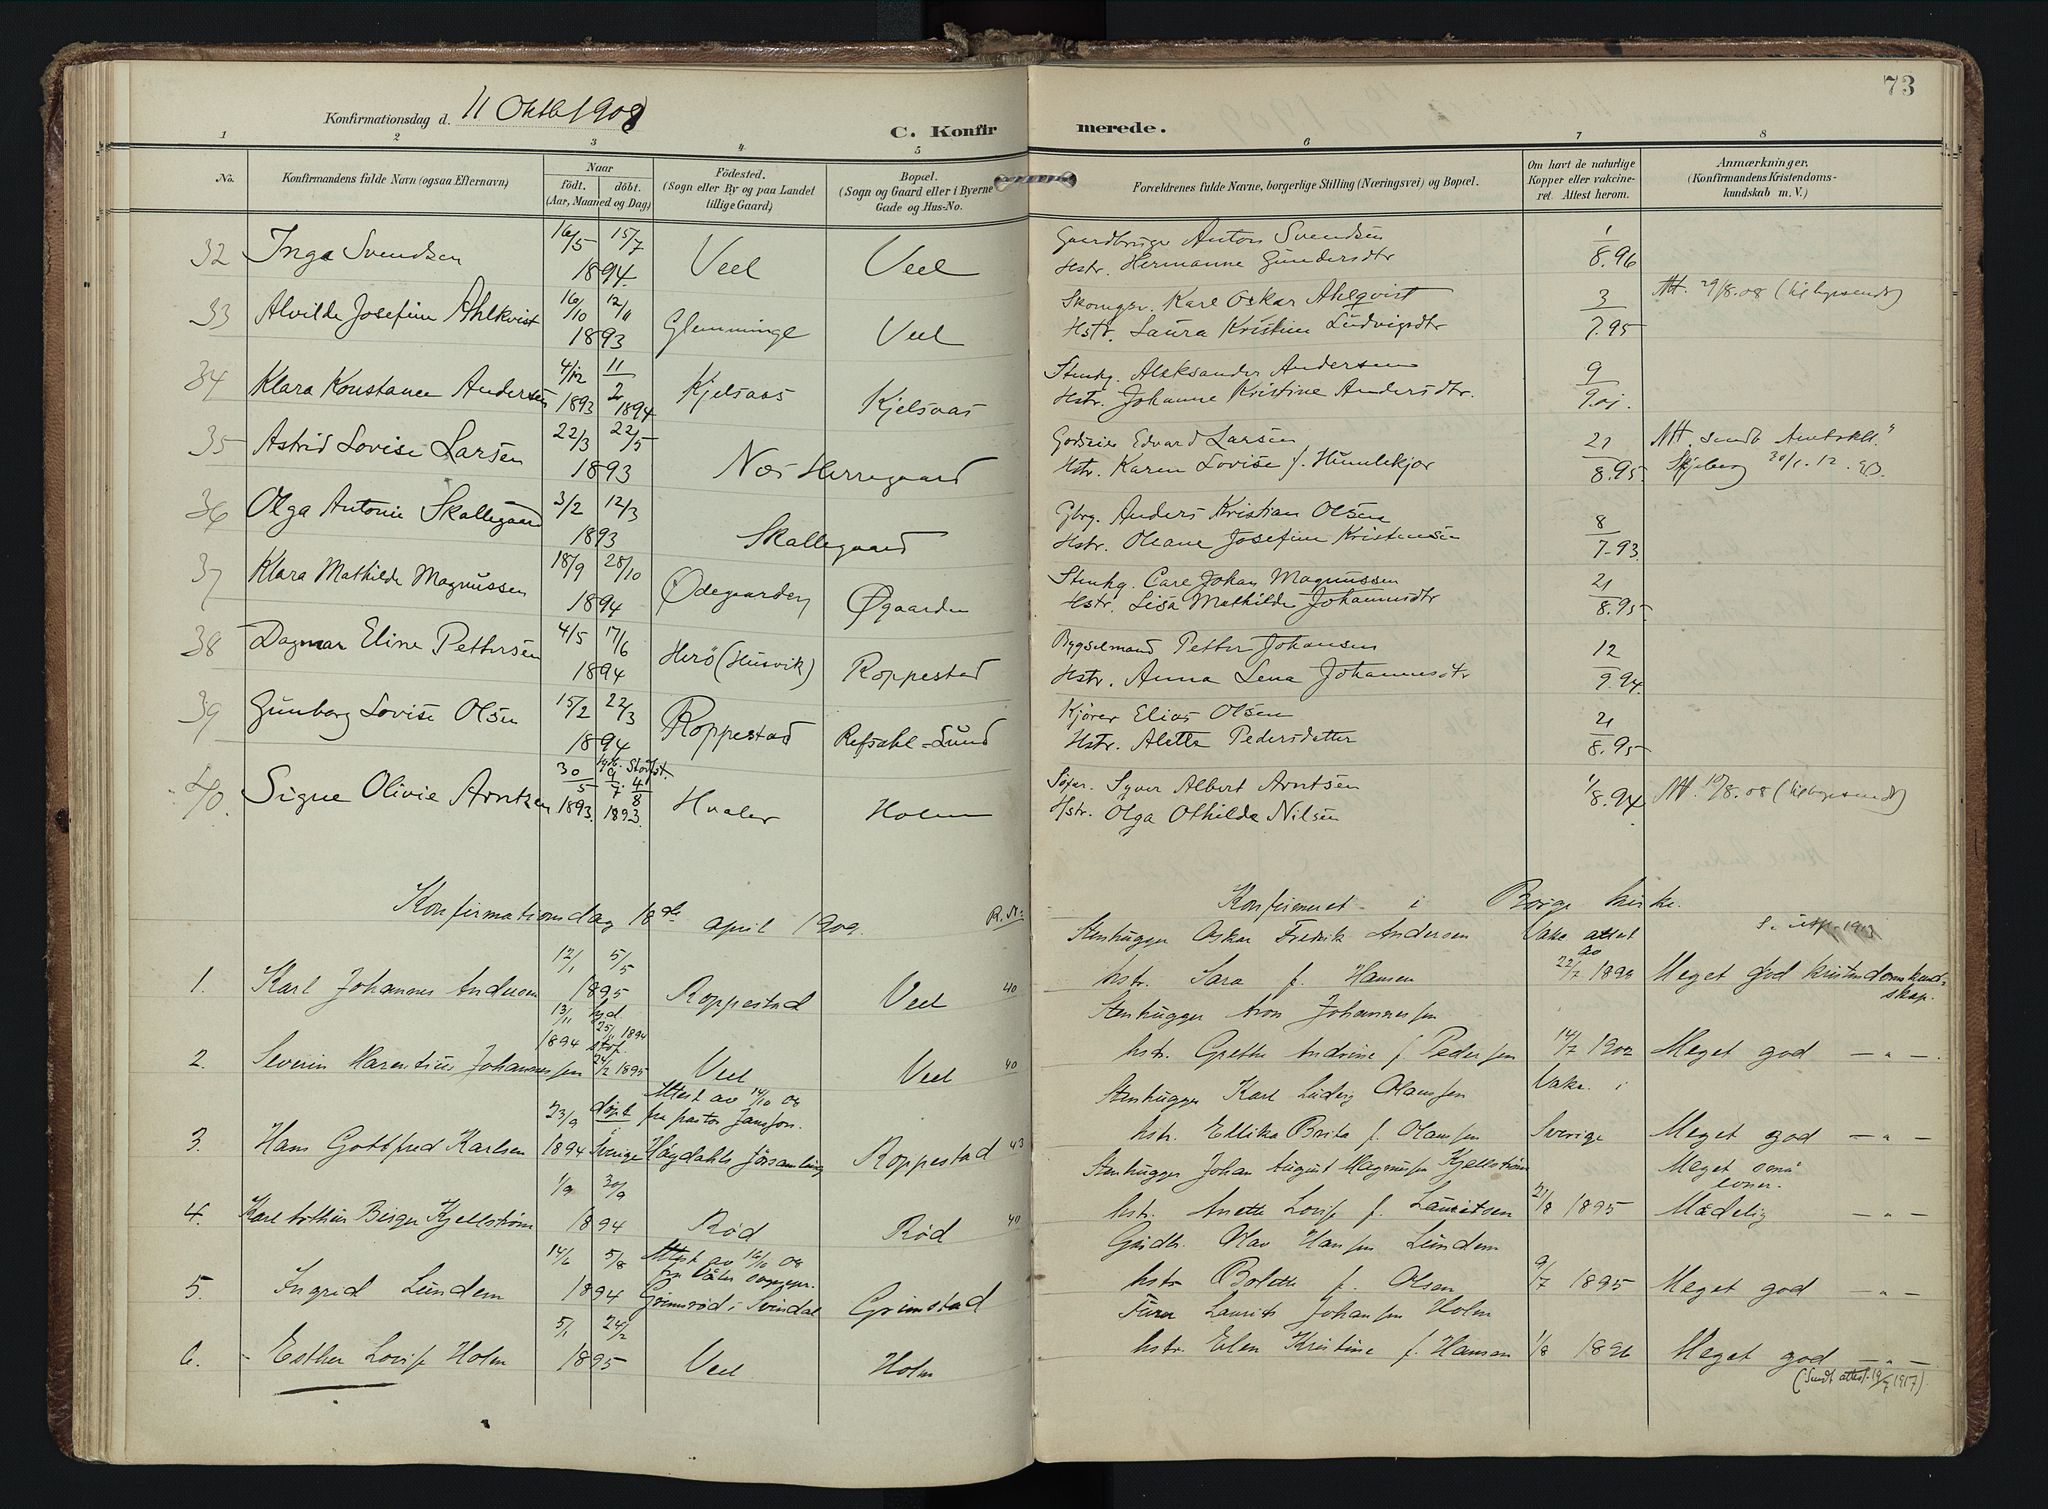 73
Konfirmationsdag d. 11 Oktb 1908
C. Konfirmerede.
1 2 3 4 5 6 7 8
No.
Konfirmandens fulde Navn (ogsaa Efternavn)
Naar født. døbt. (Aar, Maaned og Dag)
Fødested. (Sogn eller By og paa Landet tillige Gaard)
Bopæl. (Sogn og Gaard eller i Byerne Gade og Hus-No.
Forældrenes fulde Navne, borgerlige Stilling (Næringsvei) og Bopæl.
Om havt de naturlige Kopper eller vakcineret. Attest herom.
Anmærkninger, (Konfirmandens Kristendomskundskab m. V.)
32 Inga Svendsen 16/5 15/7 1894 Veel Veel Gaardbruger Anton Svendsen 1/8.96
Hstr. Hermanne Gundersdtr
33 Alvilde Josefine Ahlkvist 16/10 12/11 1893 Glemminge Veel Karl Oskar Ahlqvist 3/7.95 Att. 29/8.08
Hstr. Laura Kristine Ludvigsdtr
34 Klara Konstance Andersen 4/12 1893 11/2 1894 Kjelsaas Kjelsaas Stenhg. Aleksander Andersen 9/9.01.
Hstr. Johanne Kristine Andersdtr.
35 Astrid Lovise Larsen 22/3 22/5 1893 Nes Herregaard Godseier Edvard Larsen 21/8.95 Att. sendt
Hstr. Karen Lovise f. Humlekjær Skjeberg 30/1.12.
36 Olga Antonie Skallegaard 3/2 12/3 1893 Skallegaard Gbrg. Anders Kristian Olsen 8/7.93
Hstr. Oleane Josefine Kristensen
37 Klara Mathilde Magnussen 18/9 28/10 1894 Ødegaarden Øgaarden Stenhg. Carl Johan Magnussen 21/8.95
Hstr. Lisa Mathilde Johannesdtr
38 Dagmar Eline Pettersen 4/5 17/6 1894 Herö (Husvik) Roppestad Bygselmand Petter Johansen 12/9.94
Hstr. Anna Lena Johannesdtr
39 Gunborg Lovise Olsen 15/2 22/3 1894 Roppestad Refsahl-Lund Kjører Elias Olsen 21/8.95
Hstr. Alette Pedersdatter
40. Signe Olivie Arntzen 30/5 1893. 9/7 4/8 1893. Hvaler Holm Syver Albert Arntsen 1/8.94 Att. 10/8.08
Hstr. Olga Othilde Nilsen
Konfirmationsdag 18de april 1909. Konfirmeret i Borge kirke.
1. Karl Johannes Andersen 12/1 5/5 1895 Roppestad Veel 40 Stenhugger Oskar Fredrik Andersen Vake. attest
hstr. Sara f. Hansen 22/7 1898 Meget god kristendomskundskap.
2. Severin Harentius Johannessen 13/11 1894 24/2 1895 Veel Veel 40 Stenhugger Aron Johannessen
hstr. Grethe Andrine f. Pedersen 14/7 1902 Meget god — " —.
3. Hans Gottfred Karlsen 23/9 1894 døpt i Sverige Attest av 14/10 08 fra pastor Jansson. Høgdahls församling Roppestad 43 Stenhugger Karl Ludvig Olaussen Vake. i
hstr. Ellika Brita f. Olaussen Sverige Meget god — " —
4. Karl Arthur Birger Kjellstrøm 1/9 30/9 1894 Rød Rød 40 Stenhugger Johan August Magnussen Kjellstrøm Meget små evner.
hstr. Anette Lovise f. Lauritsen 21/8 1895 Mådelig — " —
5. Ingrid Lundem 14/6 5/8 1894 Attest av 16/10 08 Grimsrød i Svindal Grimstad Gårdbr. Olav Hansen Lundem
hstr. Bolette f. Olsen 9/7 1895 Meget god — " —
6. Esther Lovise Holm 5/1 24/2 1895 Veel Holm Laurits Johansen Holm
hstr. Elen Kristine f. Hansen 1/8 1896 Meget god — " —
(Sendt attest 19/7 1917).